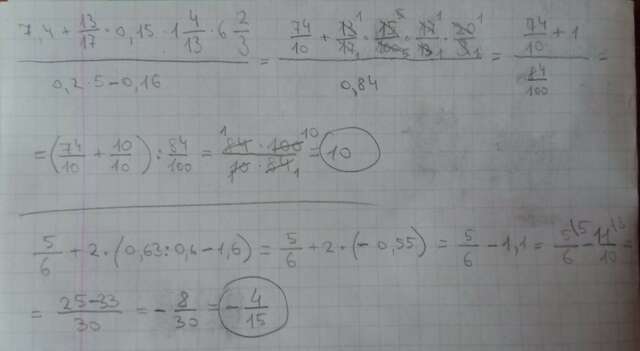 (7,4 + 13/17 · 0,15 · 1 4/13 · 6 2/3) / (0,2 · 5 - 0,16) = (74/10 + 13/17 · 15/100 · 17/13 · 20/3) / 0,84 = (74/10 + 1) / (84/100) =
= (74/10 + 10/10) : 84/100 = (84 · 100) / (10 · 84) = 10
5/6 + 2 · (0,63 : 0,6 - 1,6) = 5/6 + 2 · (- 0,55) = 5/6 - 1,1 = 5/6 - 11/10 =
= (25-33)/30 = - 8/30 = - 4/15